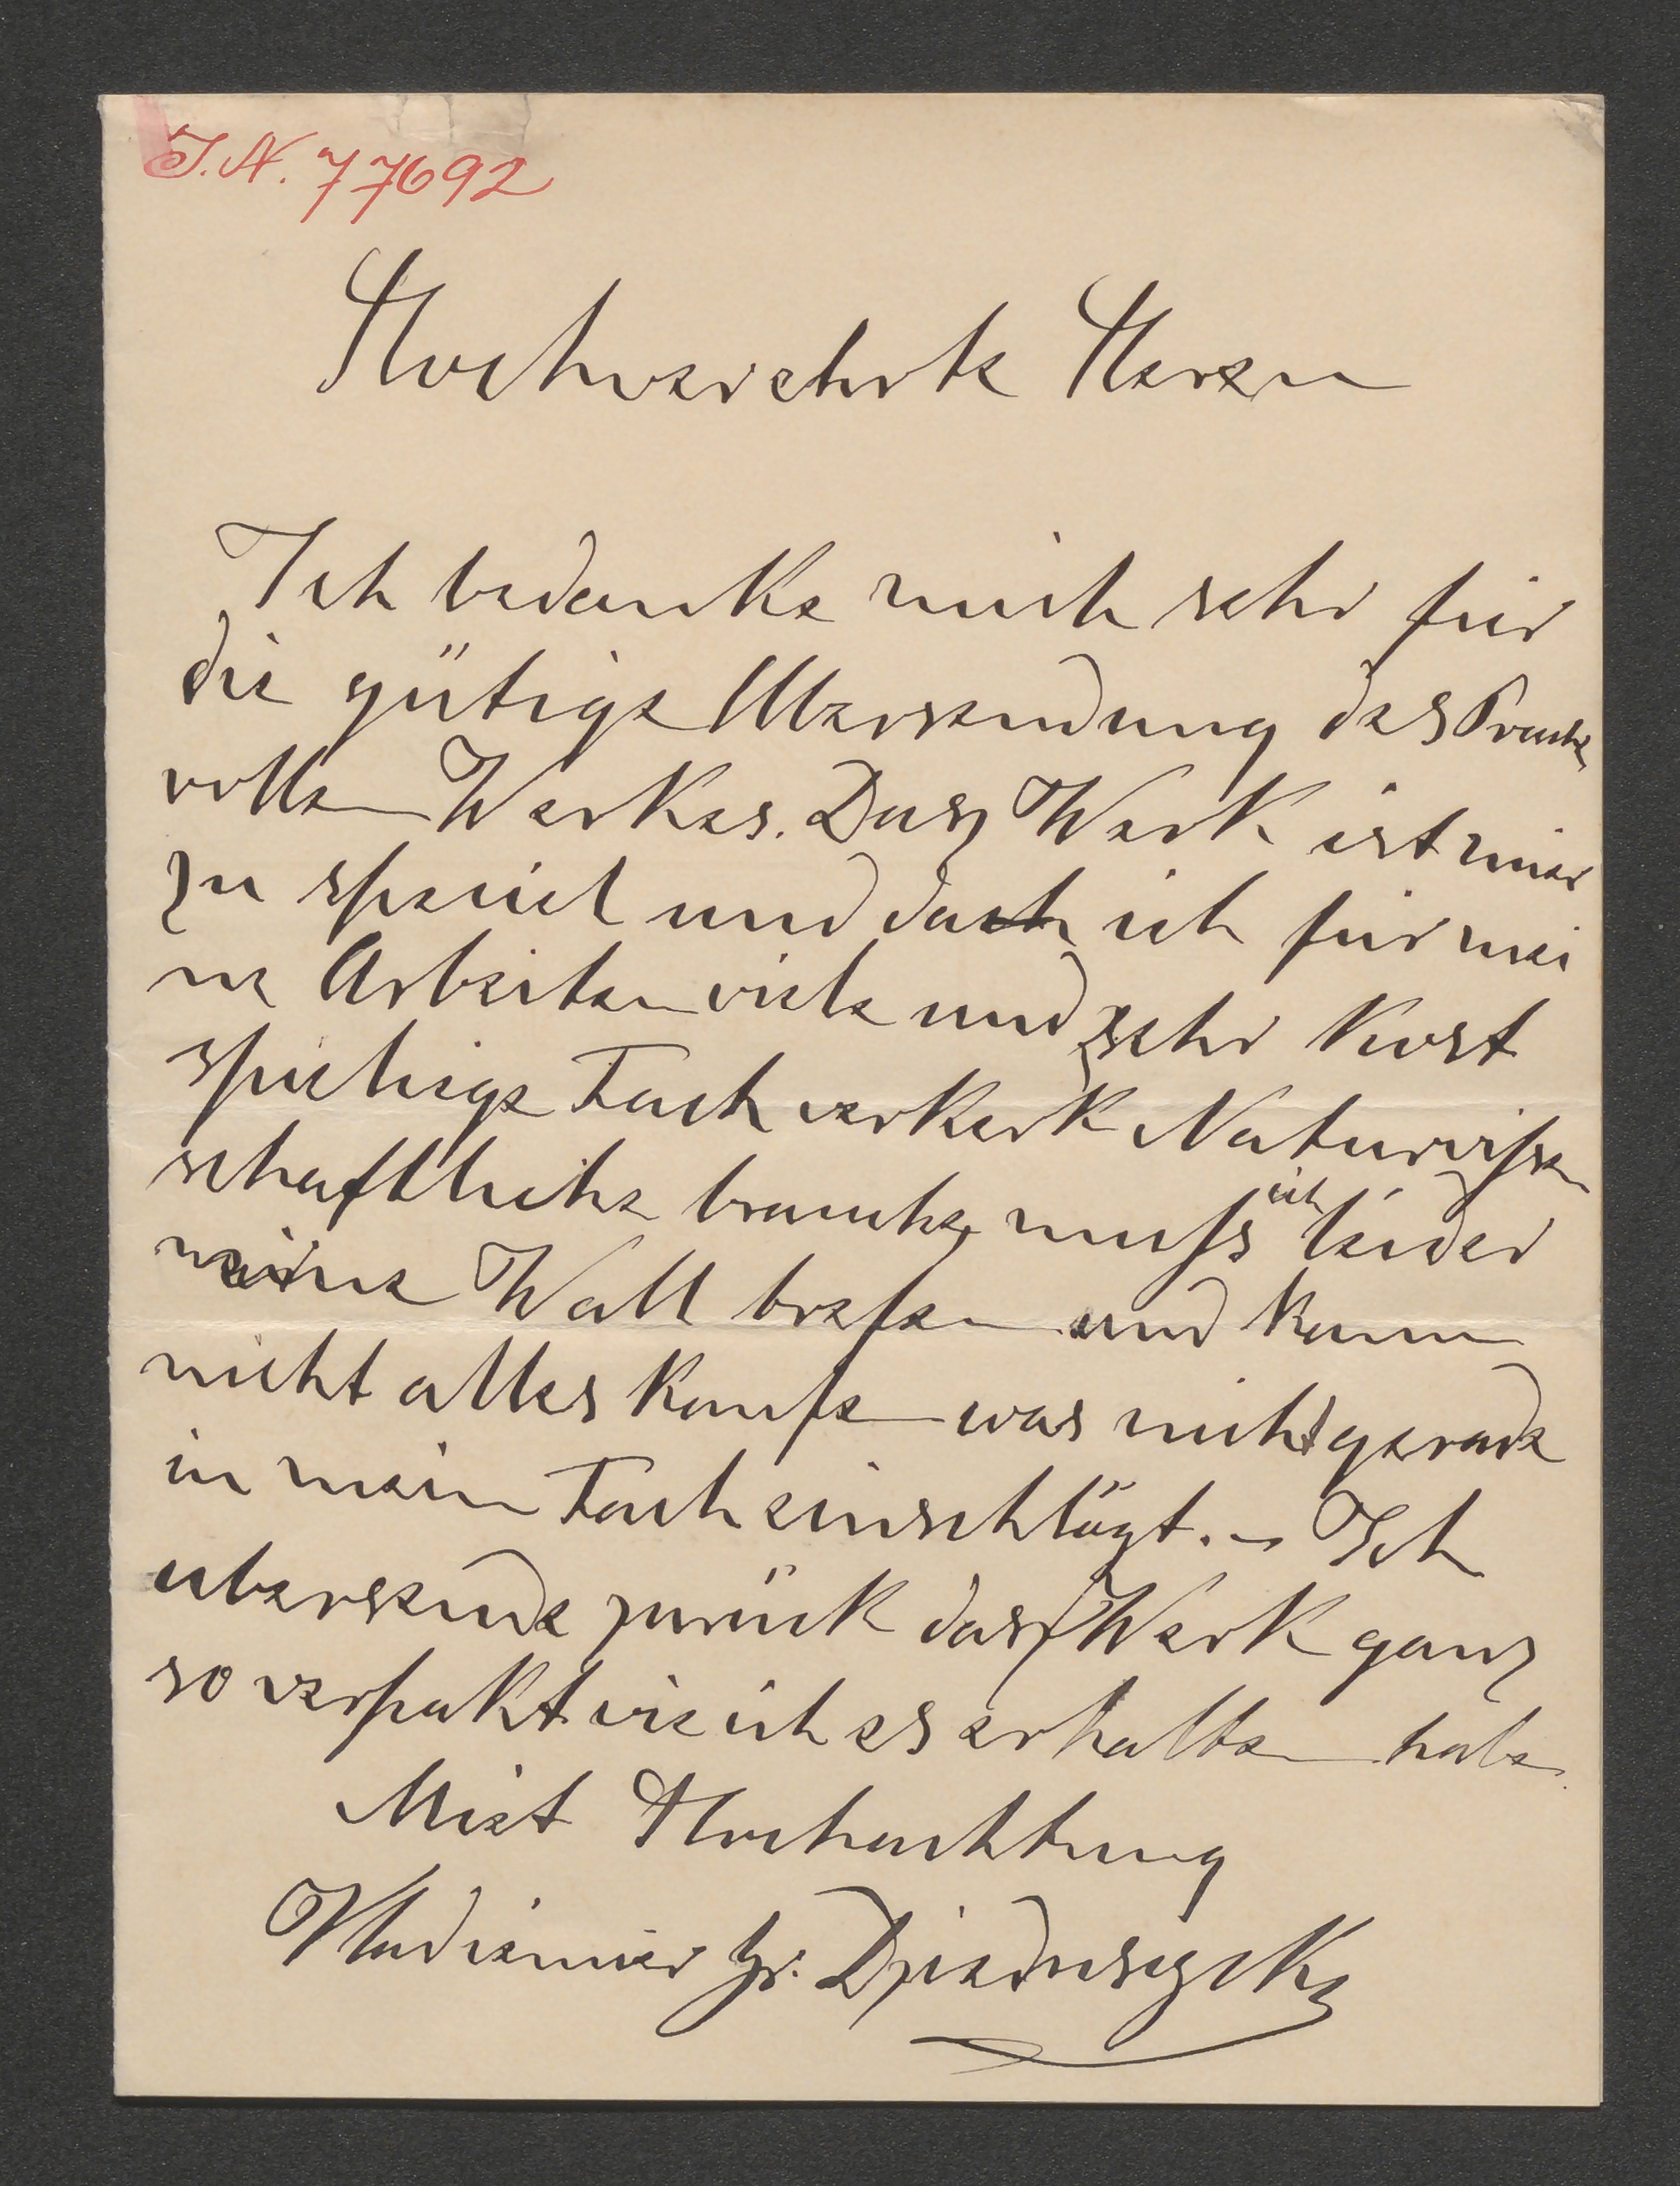 I.N. 77692
Hochverehrte Heren
Ich bedanke mich sehr für
die gütige Ubersendung des Pracht
vollen Werkes. Das Werk ist mier
zu speciel und da ich für mei
ne Arbeiten viele und sehr Kost
spielige Fach Naturwissen
schaftliche brauche, muss ich leider
meine Wall trefen und kann
nicht alles kaufen was nicht gerade
in mein Fach einschlägt. – Ich
ubersende zurück das Werk ganz
so verpakt wie ich es erhalten habe.
Miet Hochachtung
Wladiemier Gr. Dzieduszycki